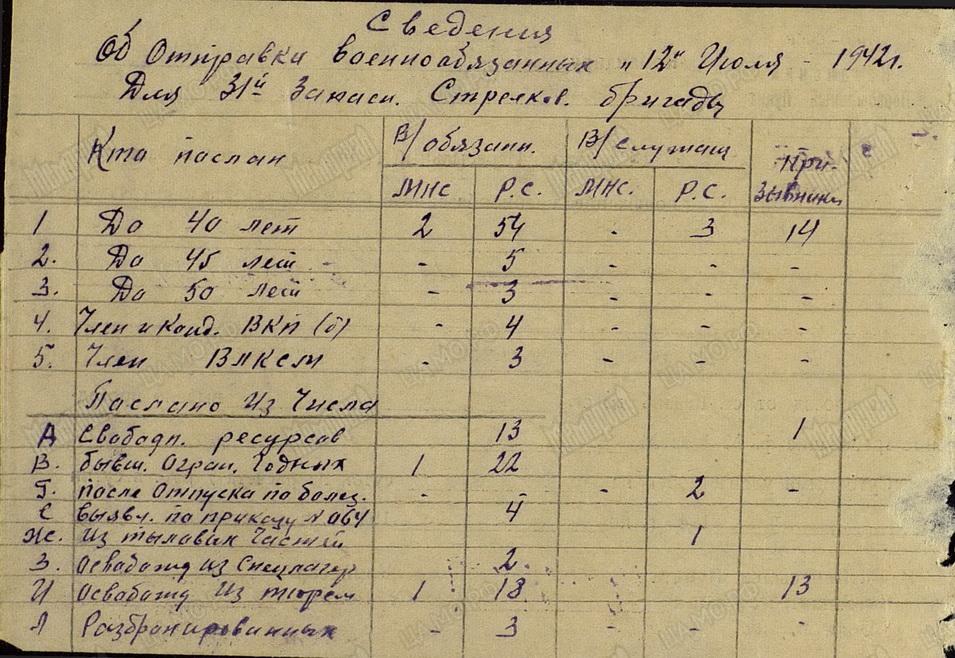 Сведения
Об Отправки военнообязанных "12" Июля - 1942г.
Для 31й Запасн. Стрелков. бригады
Кто паслан В/обязанн. В/служащ При-
МНС Р.С. МНС. Р.С. зывники
1 До 40 лет 2 54 - 3 14
2. До 45 лет - 5 - - -
3. До 50 лет - 3 - - -
4. Член и Канд. ВКП (б) - 4 - - -
5. Член ВЛКСМ - 3 - - -
Паслано Из Числа
А Свабадн. ресурсав 13 1
В. бывш. Огран. Годных 1 22
Г. после Отпуска по болез. - - 2 -
Е выявл. по приказу N 064 4
Ж. Из тылавых Частей 1
З. Асвабажд из Спецлагер 2
И Асвабажд Из тюрем 1 18 13
Л Разбранированных - 3 - - -